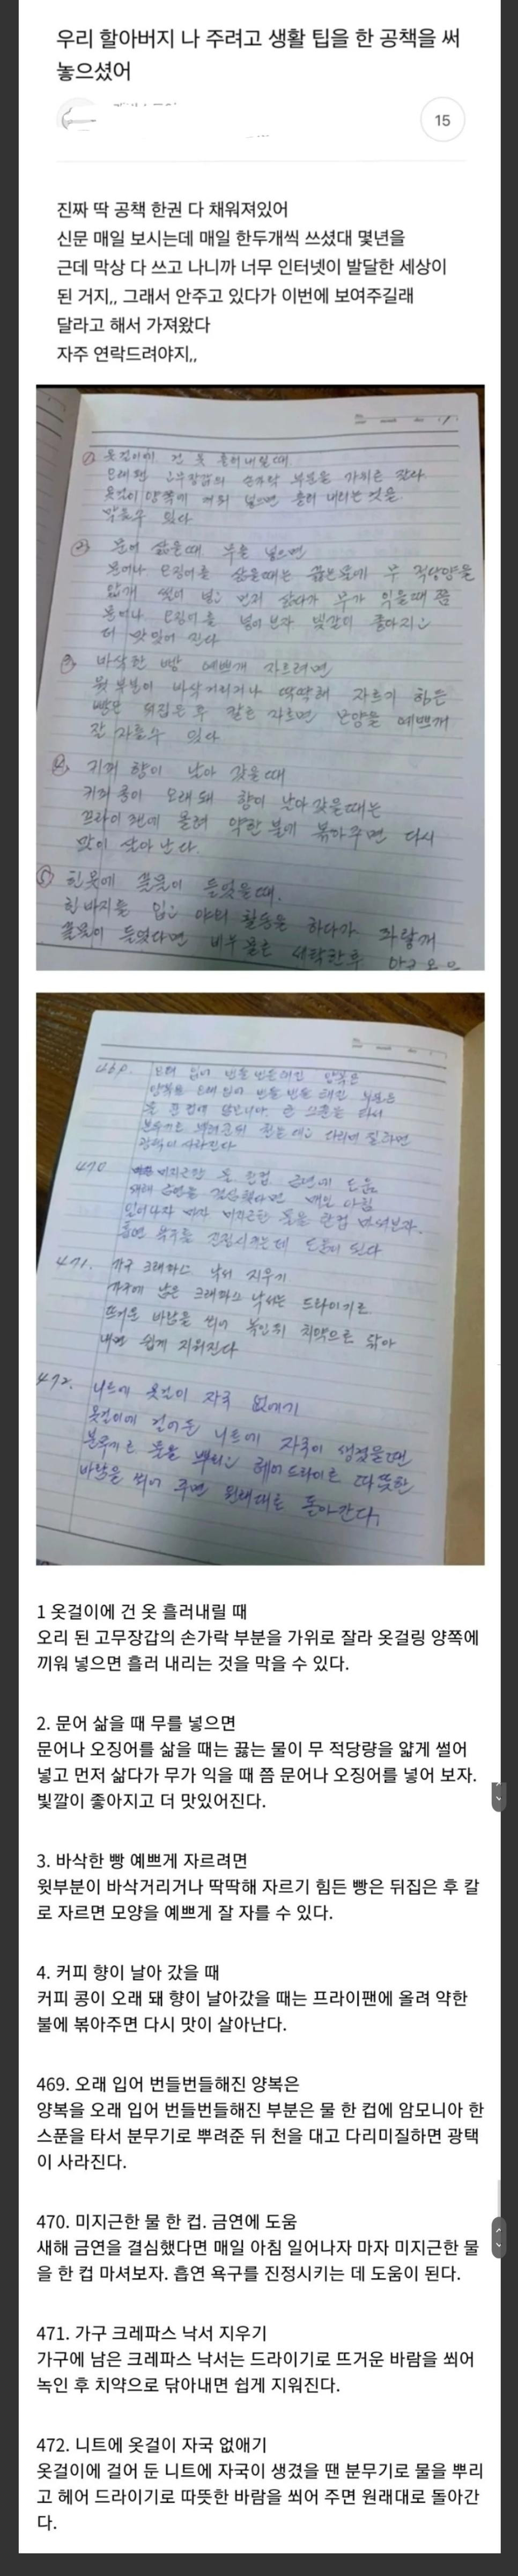 우리 할아버지 나 주려고 생활 팁을 한 공책을 써
놓으셨어
15
진짜 딱 공책 한권 다 채워져있어
신문 매일 보시는데 매일 한두개씩 쓰셨대 몇년을
근데 막상 다 쓰고 나니까 너무 인터넷이 발달한 세상이
된 거지,, 그래서 안주고 있다가 이번에 보여주길래
달라고 해서 가져왔다
자주 연락드려야지,,
① 옷걸이에 건 옷 흘러내릴때
오래된 고무장갑의 손가락 부분을 가위로 잘라
옷걸이 양쪽에 끼워 넣으면 흘러 내리는 것을
막을수 있다
② 문어 삶을때 무를 넣으면
문어나 오징어를 삶을때는 끓는물에 무 적당량을
얇게 썰어 넣고 먼저 삶다가 무가 익을때 쯤
문어나 오징어를 넣어보자 빛갈이 좋아지고
더 맛있어 진다
③ 바삭한 빵 예쁘게 자르려면
윗부분이 바삭거리거나 딱딱해 자르기 힘든
빵은 뒤집은 후 칼로 자르면 모양을 예쁘게
잘 자를수 있다
④ 커피 향이 날아 갔을때
커피 콩이 오래돼 향이 날아갔을때는
프라이팬에 올려 약한 불에 볶아주면 다시
맛이 살아난다.
⑤ 흰옷에 풀물이 들었을때.
흰바지를 입고 야외 활동을 하다가
풀물이 들였다면 세탁한후
469. 오래 입어 번들번들해진 양복은
양복을 오래입어 번들번들해진 부분은
물 한컵에 암모니아 한 스푼을 타서
분무기로 뿌려준뒤 천을 대고 다리미질하면
광택이 사라진다
470 미지근한 물 한컵 금연에 도움
새해 금연을 결심했다면 매일 아침
일어나자 마자 미지근한 물을 한컵 마셔보자.
흡연 욕구를 진정시키는데 도움이 된다
471. 가구 크레파스 낙서 지우기
가구에 남은 크레파스 낙서는 드라이기로
뜨거운 바람을 쐬어 녹인뒤 치약으로 닦아
내면 쉽게 지워진다
472. 니트에 옷걸이 자국 없애기
옷걸이에 걸어둔 니트에 자국이 생겼을땐
분무기로 물을 뿌리고 헤어드라이로 따뜻한
바람을 쐬어 주면 원래대로 돌아간다,
1 옷걸이에 건 옷 흘러내릴 때
오리 된 고무장갑의 손가락 부분을 가위로 잘라 옷걸링 양쪽에
끼워 넣으면 흘러 내리는 것을 막을 수 있다.
2. 문어 삶을 때 무를 넣으면
문어나 오징어를 삶을 때는 끓는 물이 무 적당량을 얇게 썰어
넣고 먼저 삶다가 무가 익을 때 쯤 문어나 오징어를 넣어 보자.
빛깔이 좋아지고 더 맛있어진다.
3. 바삭한 빵 예쁘게 자르려면
윗부분이 바삭거리거나 딱딱해 자르기 힘든 빵은 뒤집은 후 칼
로 자르면 모양을 예쁘게 잘 자를 수 있다.
4. 커피 향이 날아 갔을 때
커피 콩이 오래 돼 향이 날아갔을 때는 프라이팬에 올려 약한
불에 볶아주면 다시 맛이 살아난다.
469. 오래 입어 번들번들해진 양복은
양복을 오래 입어 번들번들해진 부분은 물 한 컵에 암모니아 한
스푼을 타서 분무기로 뿌려준 뒤 천을 대고 다리미질하면 광택
이 사라진다.
470. 미지근한 물 한 컵. 금연에 도움
새해 금연을 결심했다면 매일 아침 일어나자 마자 미지근한 물
을 한 컵 마셔보자. 흡연 욕구를 진정시키는 데 도움이 된다.
471. 가구 크레파스 낙서 지우기
가구에 남은 크레파스 낙서는 드라이기로 뜨거운 바람을 쐬어
녹인 후 치약으로 닦아내면 쉽게 지워진다.
472. 니트에 옷걸이 자국 없애기
옷걸이에 걸어 둔 니트에 자국이 생겼을 땐 분무기로 물을 뿌리
고 헤어 드라이기로 따뜻한 바람을 쐬어 주면 원래대로 돌아간
다.